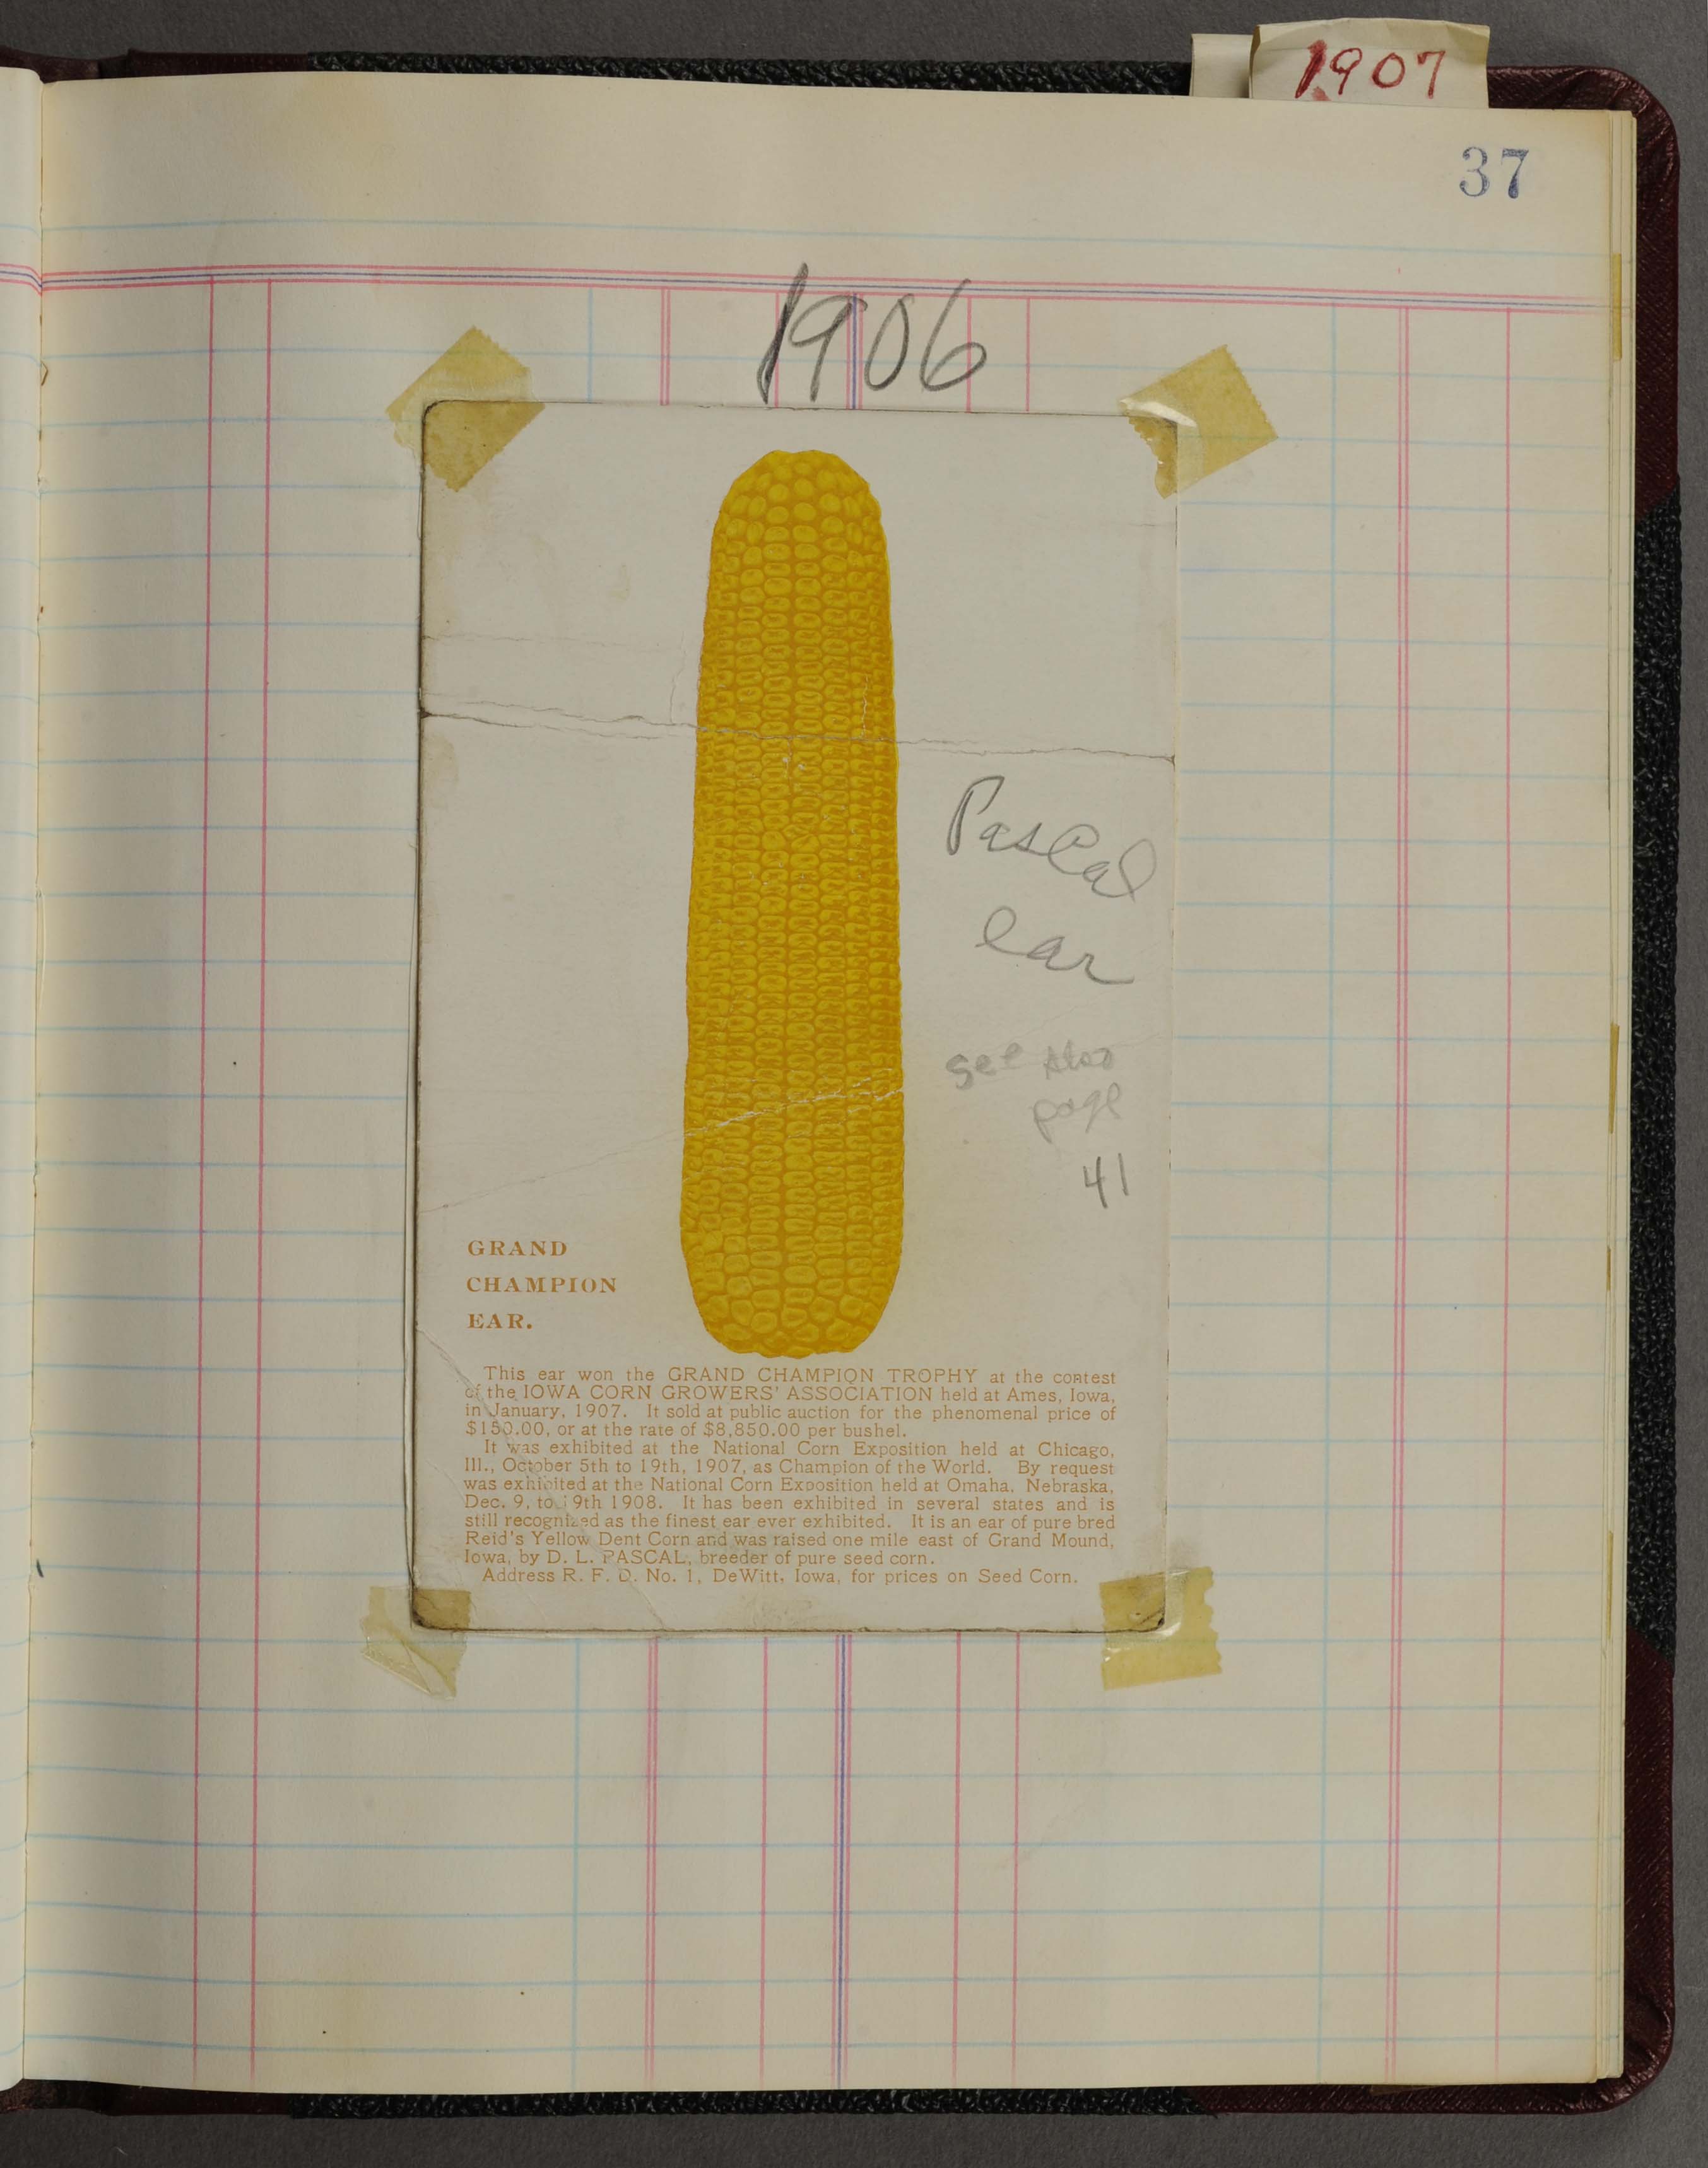 1907
37
1906
Pascal
ear
see also
page
41
GRAND
CHAMPION
EAR.
This ear won the GRAND CHAMPION TROPHY at the contest
of the IOWA CORN GROWERS' ASSOCIATION held at Ames, Iowa,
in January, 1907. It sold at public auction for the phenomenal price of
$150.00, or at the rate of $8,850.00 per bushel.
It was exhibited at the National Corn Exposition held at Chicago,
Ill., October 5th to 19th, 1907, as Champion of the World. By request
was exhibited at the National Corn Exposition held at Omaha, Nebraska,
Dec. 9, to 19th 1908. It has been exhibited in several states and is
still recognized as the finest ear ever exhibited. It is an ear of pure bred
Reid's Yellow Dent Corn and was raised one mile east of Grand Mound,
Iowa, by D. L. PASCAL, breeder of pure seed corn.
Address R. F. D. No. 1, DeWitt, Iowa, for prices on Seed Corn.